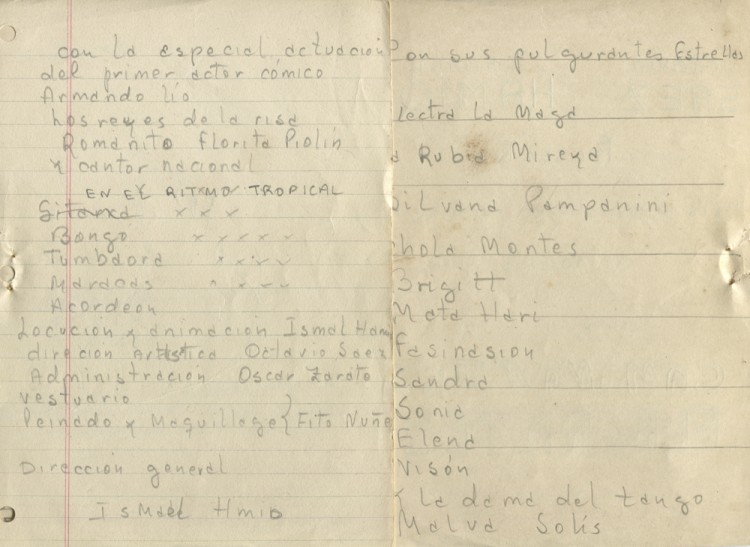 con La especial actuación
del primer actor cómico
Armando lío
hos reyes de la risa
Romanito florita Piolin
y cantor nacional
EN EL RITMO TROPICAL
Gitarra x x x
Bongo x x x x x
Tumbdora x x x x
Maracas x x x x
Acordeon
Locucion y animacion Ismal Ham
direcion Artistica Octavio Saez
Administración Oscar Zarato
vestuario
Peinado y Maquillage } Fito Nuñe
Direcciòn general
Ismael Hmid
on sus fulgurantes Estrellas
lectra La Maga
a Rubia Mireya
ilvana Pampanini
hola Montes
Brigitt
Mata Hari
fasinasion
Sandra
Sonia
Elena
Visón
y La dama del tango
Malva Solís